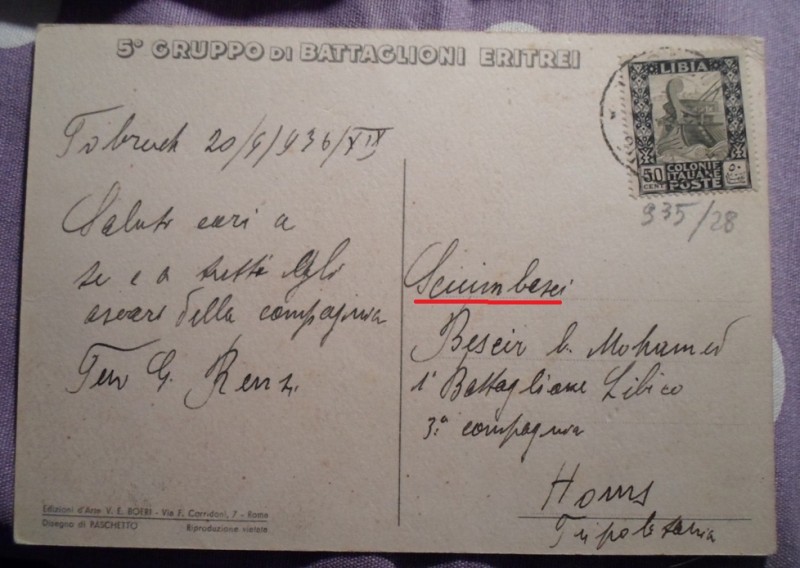 5° GRUPPO DI BATTAGLIONI ERITREI
LIBIA
50
CENT
COLONIE
ITALIANE
POSTE
٥٠
935/28
Tobruch 20/9/936/XIV
Saluti cari a
te e a tutti gli
ascari della compagnia
Ten G. Renzi
Sciumbasci
Bescir b. Mohamed
1° Battaglione Libico
3ª compagnia
Homs
Tripolitania
Edizioni d'Arte V. E. BOERI - Via F. Corridoni, 7 - Roma
Disegno di PASCHETTO Riproduzione vietata